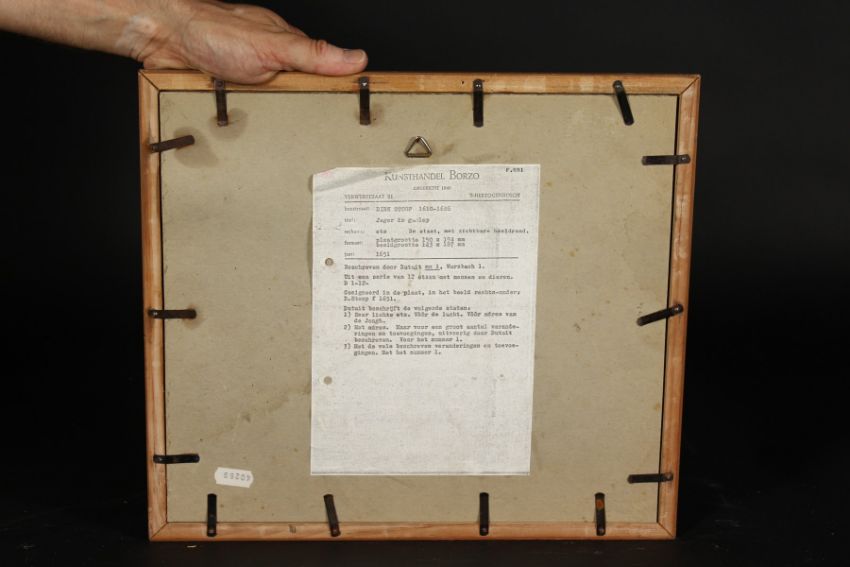 F.551
KUNSTHANDEL BORZO
OPGERICHT
VERWERSSTRAAT 21 'S-HERTOGENBOSCH
kunstenaar: DIRK STOOP 1618-1686
titel: Jager in galop
ets De staat, met zichtbare beeldrand.
formaat: plaatgrootte 150 x 194 mm
beeldgrootte 143 x 187 mm
jaar: 1651
Beschreven door Dutuit no 1, Wurzbach 1.
Uit een serie van 12 etsen met mensen en dieren.
B 1-12.
Gesigneerd in de plaat, in het beeld rechts-onder:
D.Stoop f 1651.
Dutuit beschrijft de volgende staten:
1) Zeer lichte ets. Vóór de lucht. Vóór adres van
de Jongh.
2) Met adres. Maar voor een groot aantal verande-
ringen en toevoegingen, uitvoerig door Dutuit
beschreven. Voor het nummer 1.
3) Met de vele beschreven veranderingen en toevoe-
gingen. Met het nummer 1.
40265